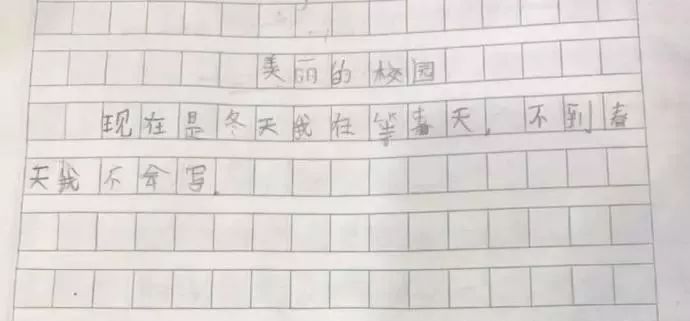 美丽的校园
现在是冬天我在等春天，不到春
天我不会写.